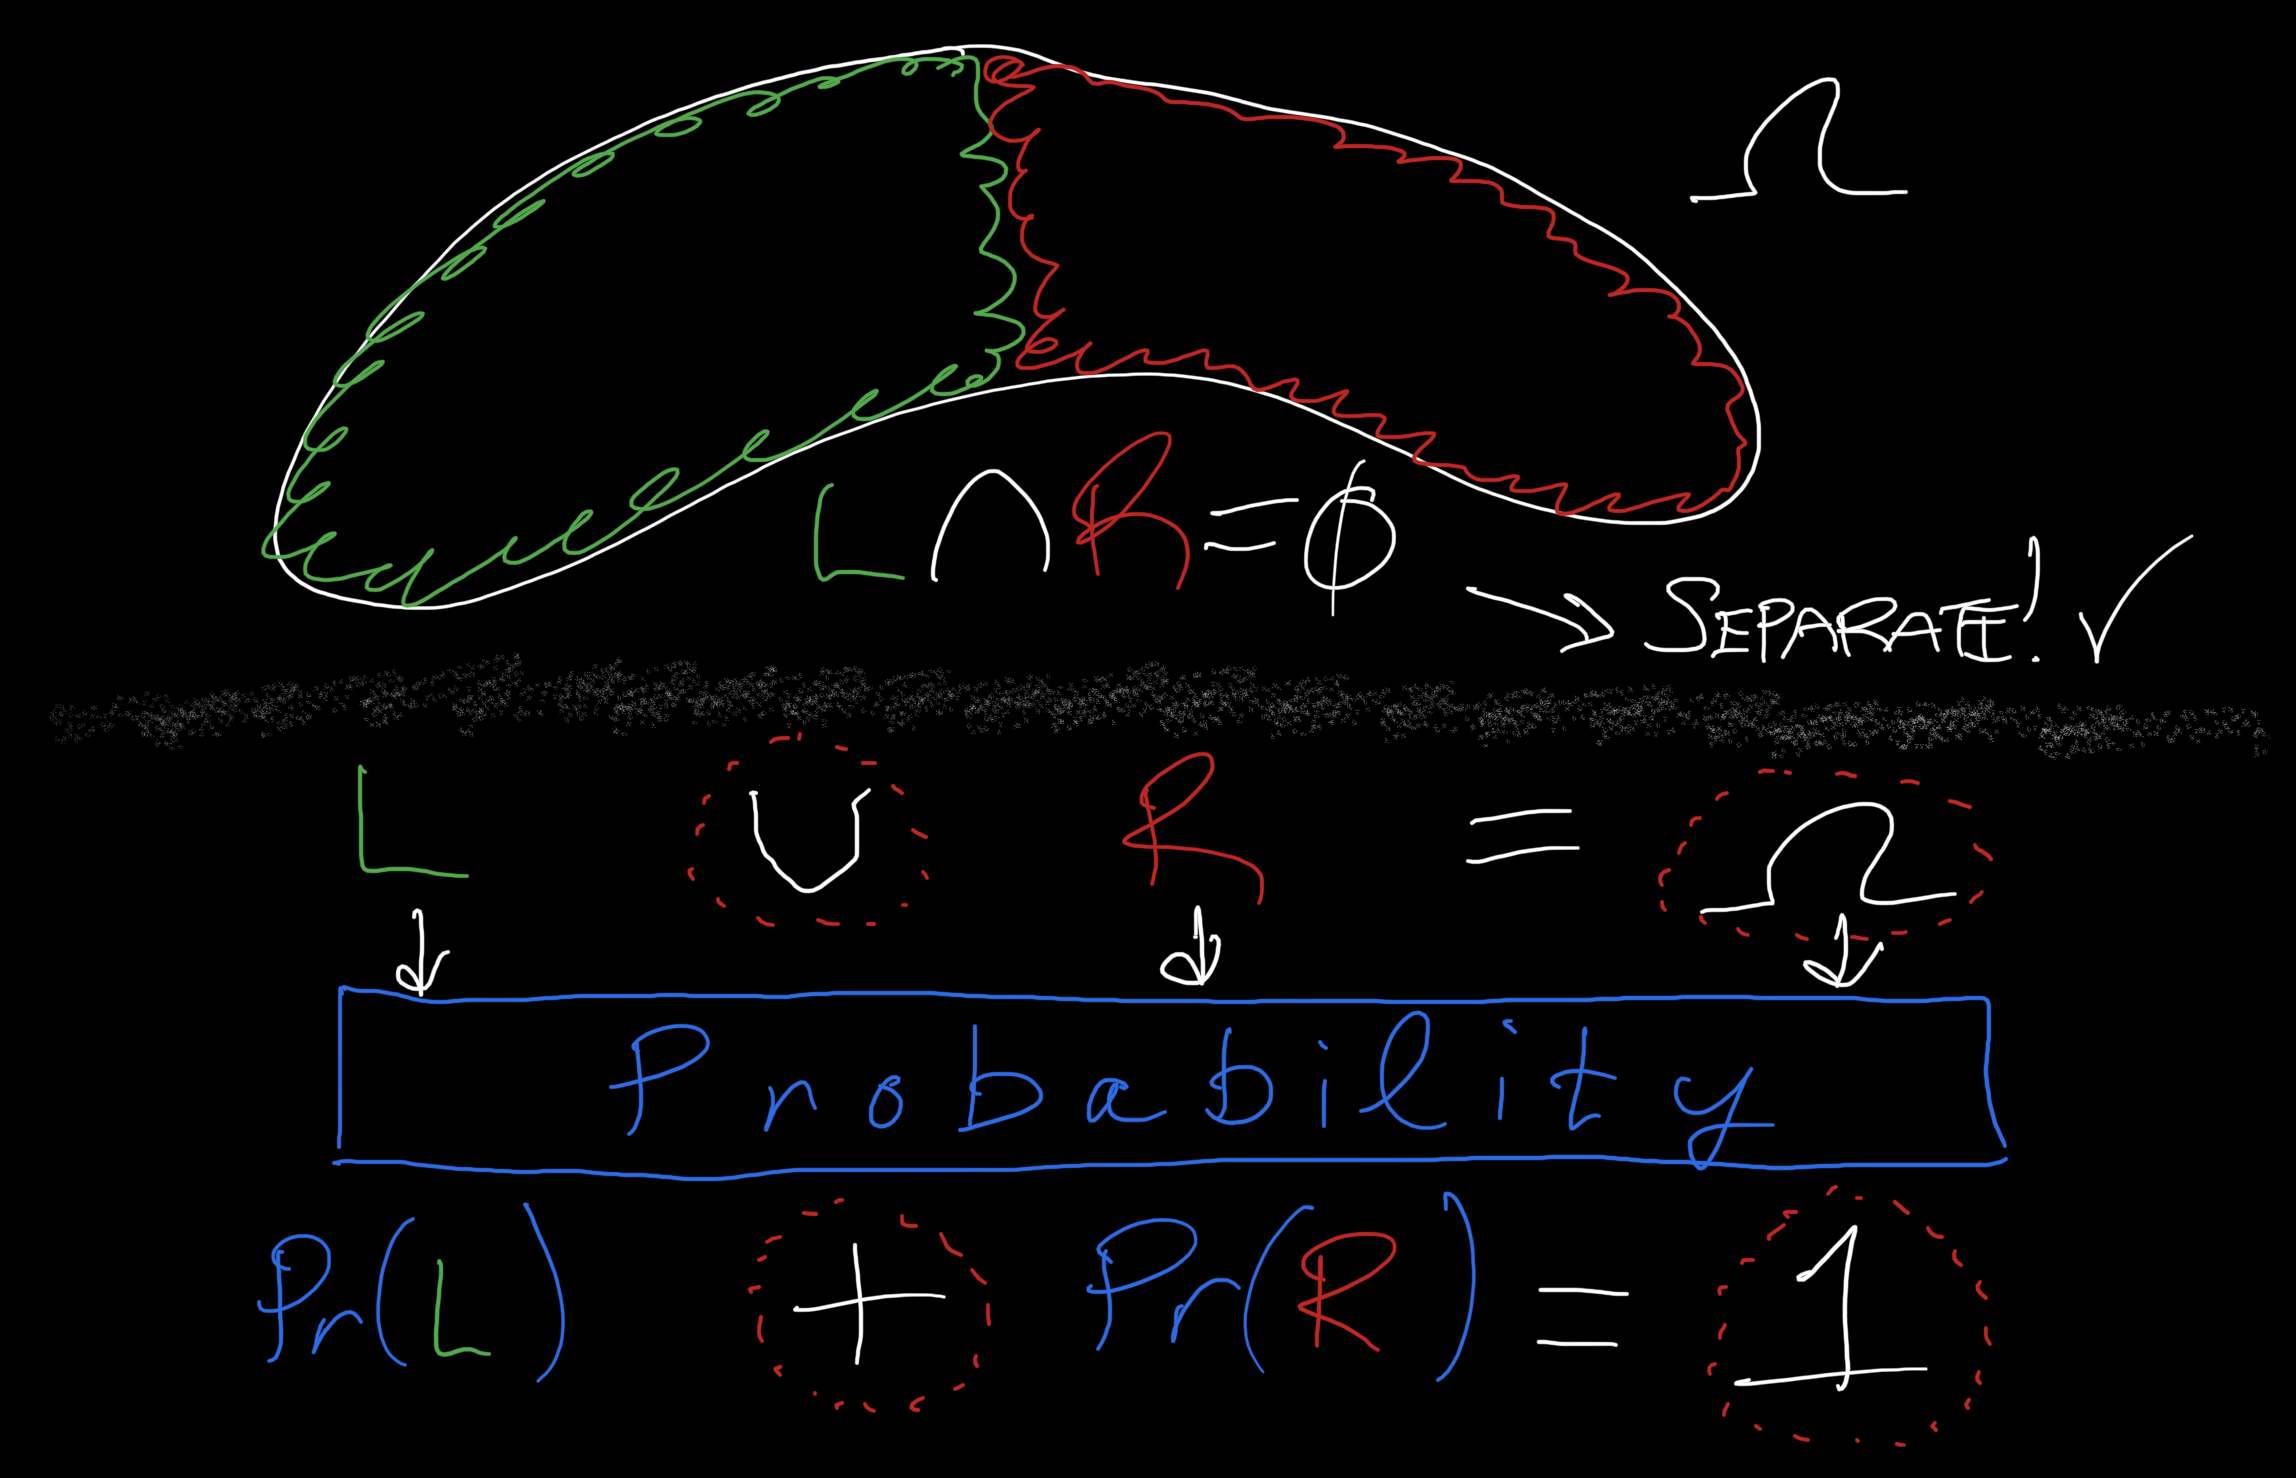 Ω
L ∩ R = ϕ
→ SEPARATE! ✓
L ∪ R = Ω
↓ ↓ ↓
Probability
Pr(L) + Pr(R) = 1